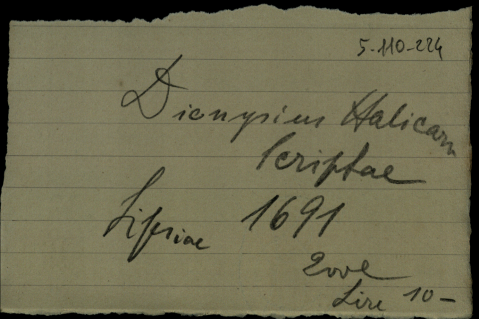 5-110-224
Dionysius Halicarn
Scriptae
Lipsiae 1691
2 vol
Lire 10-